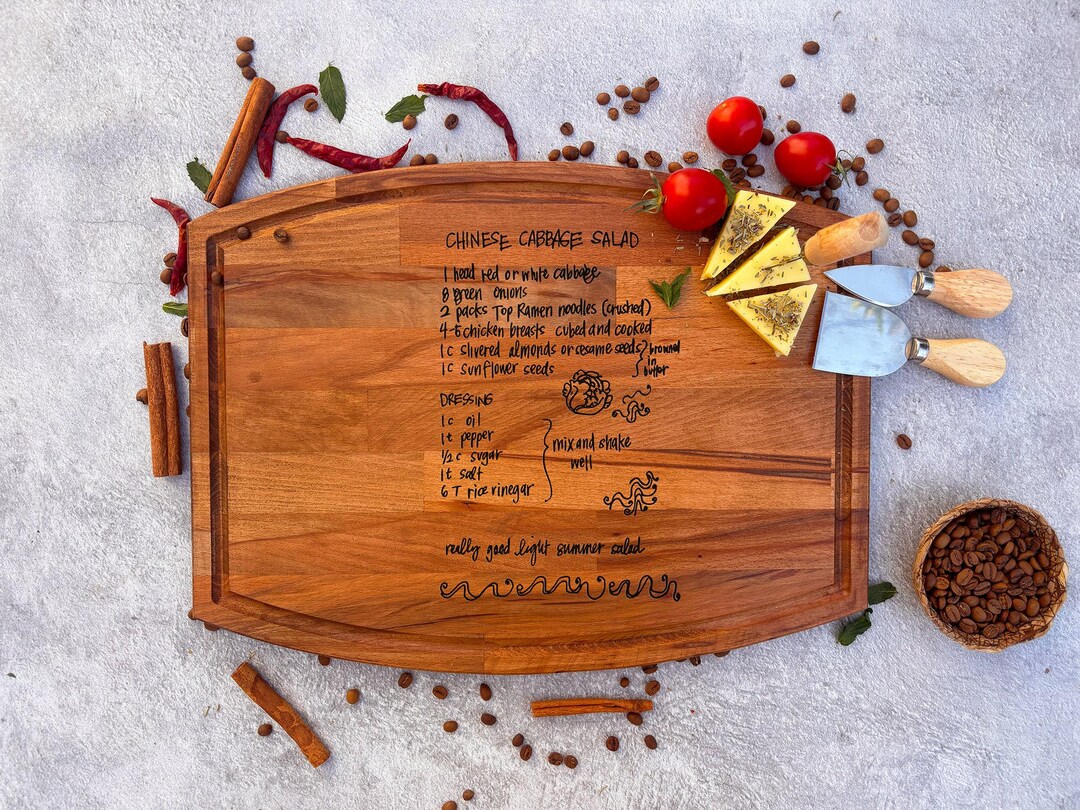 CHINESE CABBAGE SALAD
1 head red or white cabbage
8 green onions
2 packs Top Ramen noodles (crushed)
4-5 chicken breasts cubed and cooked
1 c slivered almonds or sesame seeds } browned in butter
1 c sunflower seeds
DRESSING
1 c oil
1 t pepper
1/2 c sugar
1 t salt
6 T rice vinegar
} mix and shake
well
really good light summer salad